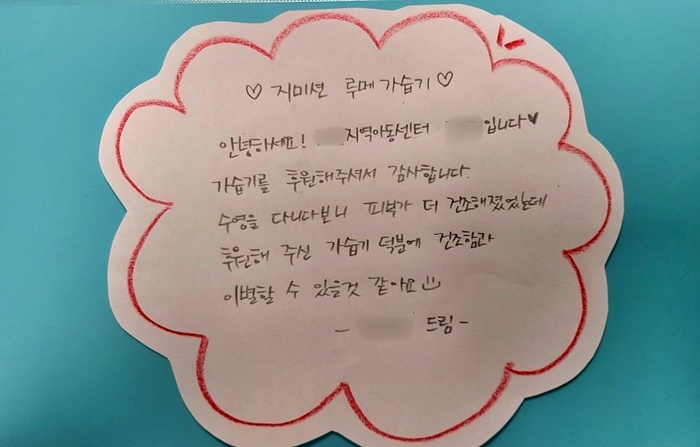 ♡ 지미션 루메 가습기 ♡
안녕하세요! 지역아동센터 입니다♥
가습기를 후원해주셔서 감사합니다.
수영을 다니다보니 피부가 더 건조해졌었는데
후원해 주신 가습기 덕분에 건조함과
이별할 수 있을것 같아요
- 드림 -